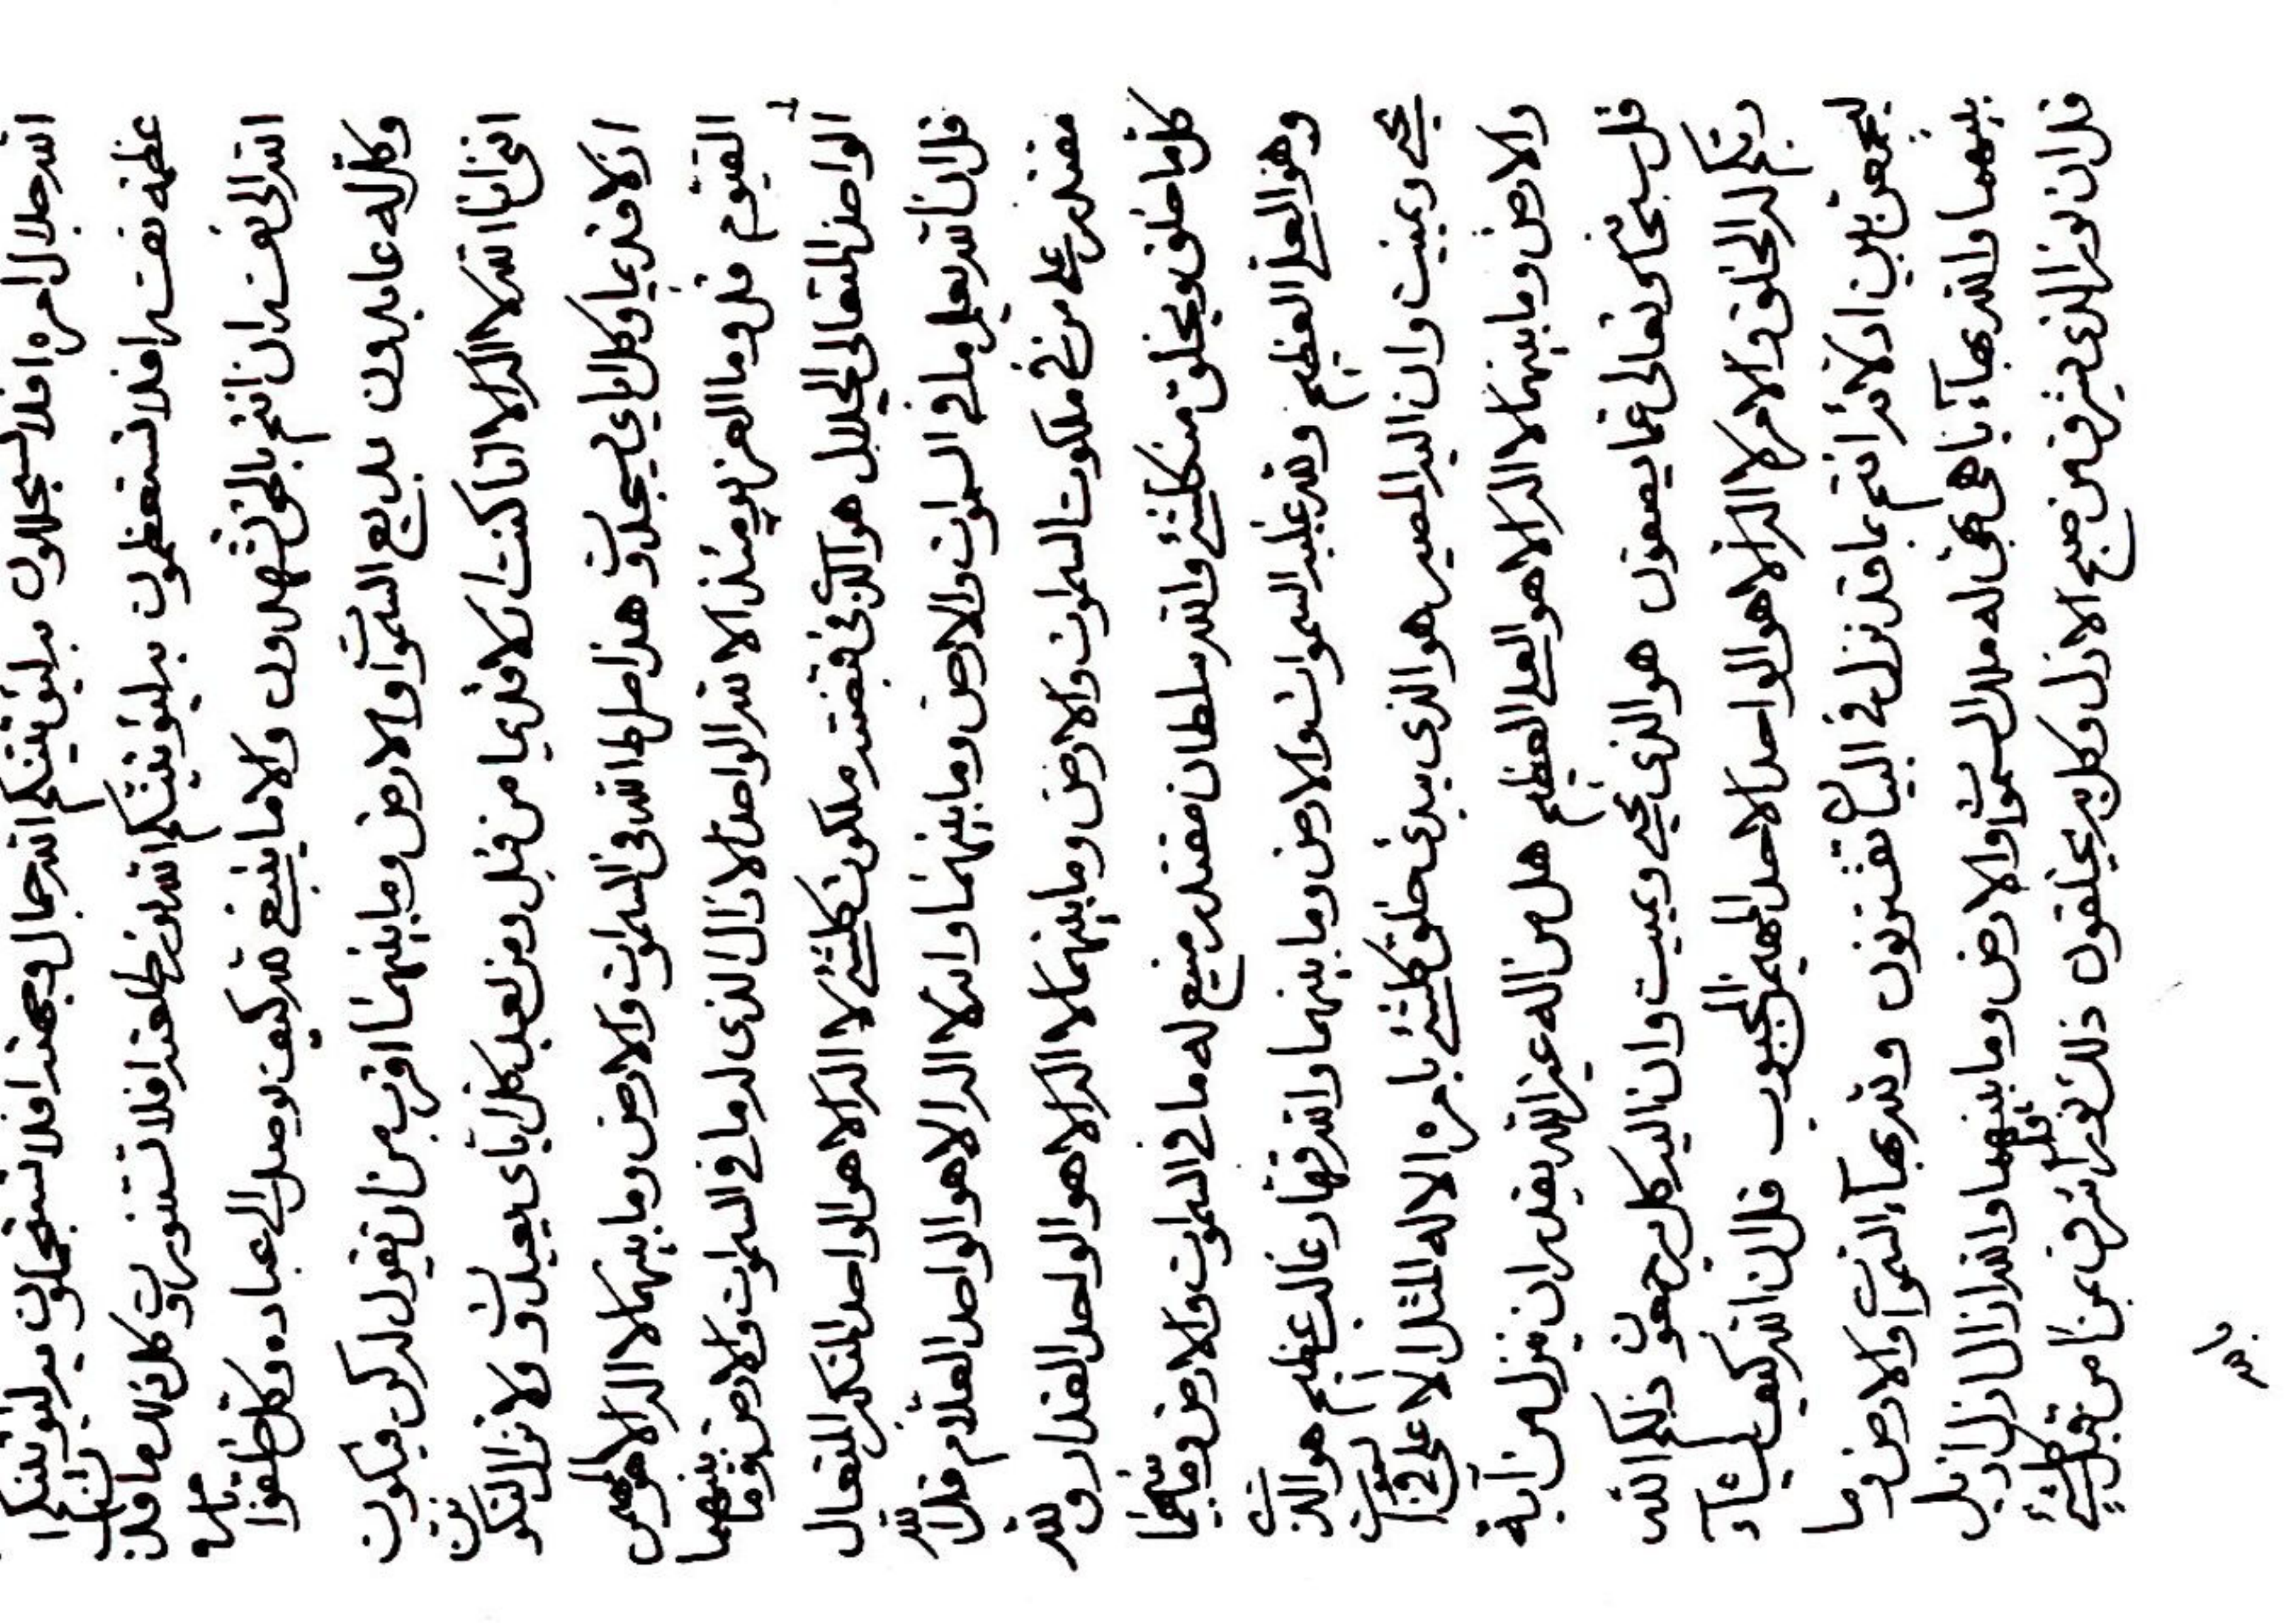 الله جلال امره افلا تستجللون الله جمال وجهه افلا تستجملون
عظمة نفسه افلا تستعظمون الله نور طلعته افلا تستنورون وكل ذلك ما قد
الله الى نفسه ان انتم بالحق تشهدون والا ما ينبغي لله كيف يوصل الى عباده وكل خلقوا
وكل له عابدون بديع السموات والارض وما بينهما اقرب من ان يقول له كن فيكون
انني انا الله لا اله الا انا كنت قديما من قبل ومن بعد كل اياي يعبدون ولا تزال لتكونن
ازلا قديما وكل اياي يسجدون هذا صراط الله في السموات والارض وما بينهما لا اله الا هو المهيمن
القيوم قل وما العز يومئذ الا لله الواحد الازال الذي له ما في السموات والارض وما بينهما
الواحد المتعالي الجلال هو الذي في قبضته ملكوت كلشئ لا اله الا هو الواحد المتكبر المتعال
قل ان الله يعلم ما في السموات والارض وما بينهما وانه لا اله الا هو الواحد العلام قل الله
مقتدر على من في ملكوت السموات والارض وما بينهما لا اله الا هو الواحد القدار ولله
كل ما خلق ويخلق من كلشئ والله سلطان مقتدر منيع له ما في السموات والارض وما بينهما
وهو العلي العظيم ولله غيب السموات والارض وما بينهما والله قهار غالب عظيم هو الذي
يحيي ويميت وان اليه المصير هو الذي يبدئ خلق كلشئ بامره الا له المثل الاعلى في السموات
والارض وما بينهما لا اله الا هو العلي العظيم هل من اله غير الله يقدر ان ينزل من آية
قل سبحانه وتعالى عما يصفون هو الذي يحيي ويميت وان اليه كل يرجعون ذلكم الله
ربكم له الخلق والامر لا اله الا هو الواحد الاحد المهيمن المحبوب قل ان الله كيف يشآء
ليجمعن بين انتم بما قد نزل في البيان تقترنون ولله بهآء السموات والارض وما
بينهما والله بهآء باهي بهي له ملك السموات والارض وما بينهما والله ازال ازل ازيل
قل ان نور الذي يشرق من صبح الازل وكل به يخلقون ذلك نور اشرق من قبل كلشئ